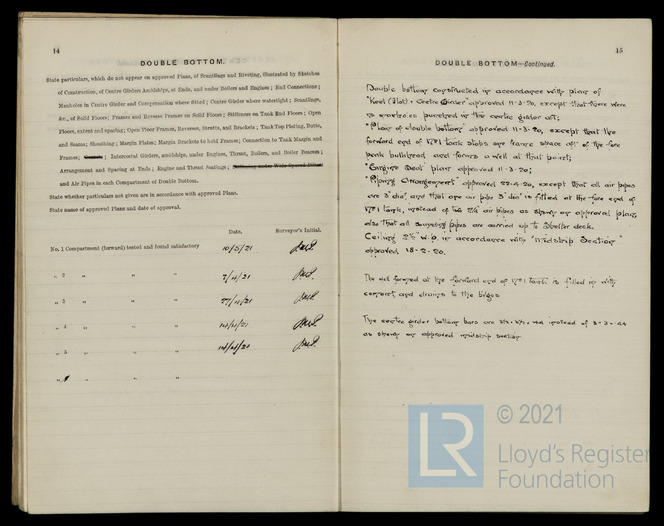 14
DOUBLE BOTTOM.
State particulars, which do not appear on approved Plans, of Scantlings and Riveting, illustrated by Sketches
of Construction, of Centre Girders Amidships, at Ends, and under Boilers and Engines; End Connections;
Manholes in Centre Girder and Compensation where fitted; Centre Girder where watertight; Scantlings,
&c., of Solid Floors; Frames and Reverse Frames on Solid Floors; Stiffeners on Tank End Floors; Open
Floors, extent and spacing; Open Floor Frames, Reverses, Struts, and Brackets; Tank Top Plating, Butts,
and Seams; Sheathing; Margin Plates; Margin Brackets to hold Frames; Connection to Tank Margin and
Frames; Intercostal Girders, amidships, under Engines, Thrust, Boilers, and Boiler Bearers;
Arrangement and Spacing at Ends; Engine and Thrust Seatings; Stiffening under Wide Spaced Pillars
and Air Pipes in each Compartment of Double Bottom.
State whether particulars not given are in accordance with approved Plans.
State name of approved Plans and date of approval.
Date. Surveyor's Initial.
No. 1 Compartment (forward) tested and found satisfactory 10/5/21
„ 2 „ „ „ 7/4/21
„ 3 „ „ „ 27/4/21
„ 4 „ „ „
„ 5 „ „ „
„ „ „ „
15
DOUBLE BOTTOM—Continued.
Double bottom constructed in accordance with plan of
"Keel (Flat) & Centre Girder" approved 11-3-20, except that there were
no manholes punched in the centre girder aft;
"Plan of double bottom" approved 11-3-20, except that the
forward end of No 1 tank stops one frame space aft of the fore
peak bulkhead and forms a well at that point;
"Engine Seat" plan approved 11-3-20;
"Piping Arrangement" approved 22-4-20, except that all air pipes
are 3" dia, and that one air pipe 3" dia is fitted at the fore end of
No 1 tank, instead of two 2½ air pipes as shown on approved plan,
also that all sounding pipes are carried up to Shelter deck.
Ceiling 2½" W.P. in accordance with "Midship Section"
approved 18-2-20.
The well formed at the forward end of No 1 tank is filled in with
cement and drains to the bilges
The centre girder bottom bars are instead of
as shown on approved midship section
LR
© 2021
Lloyd's Register
Foundation